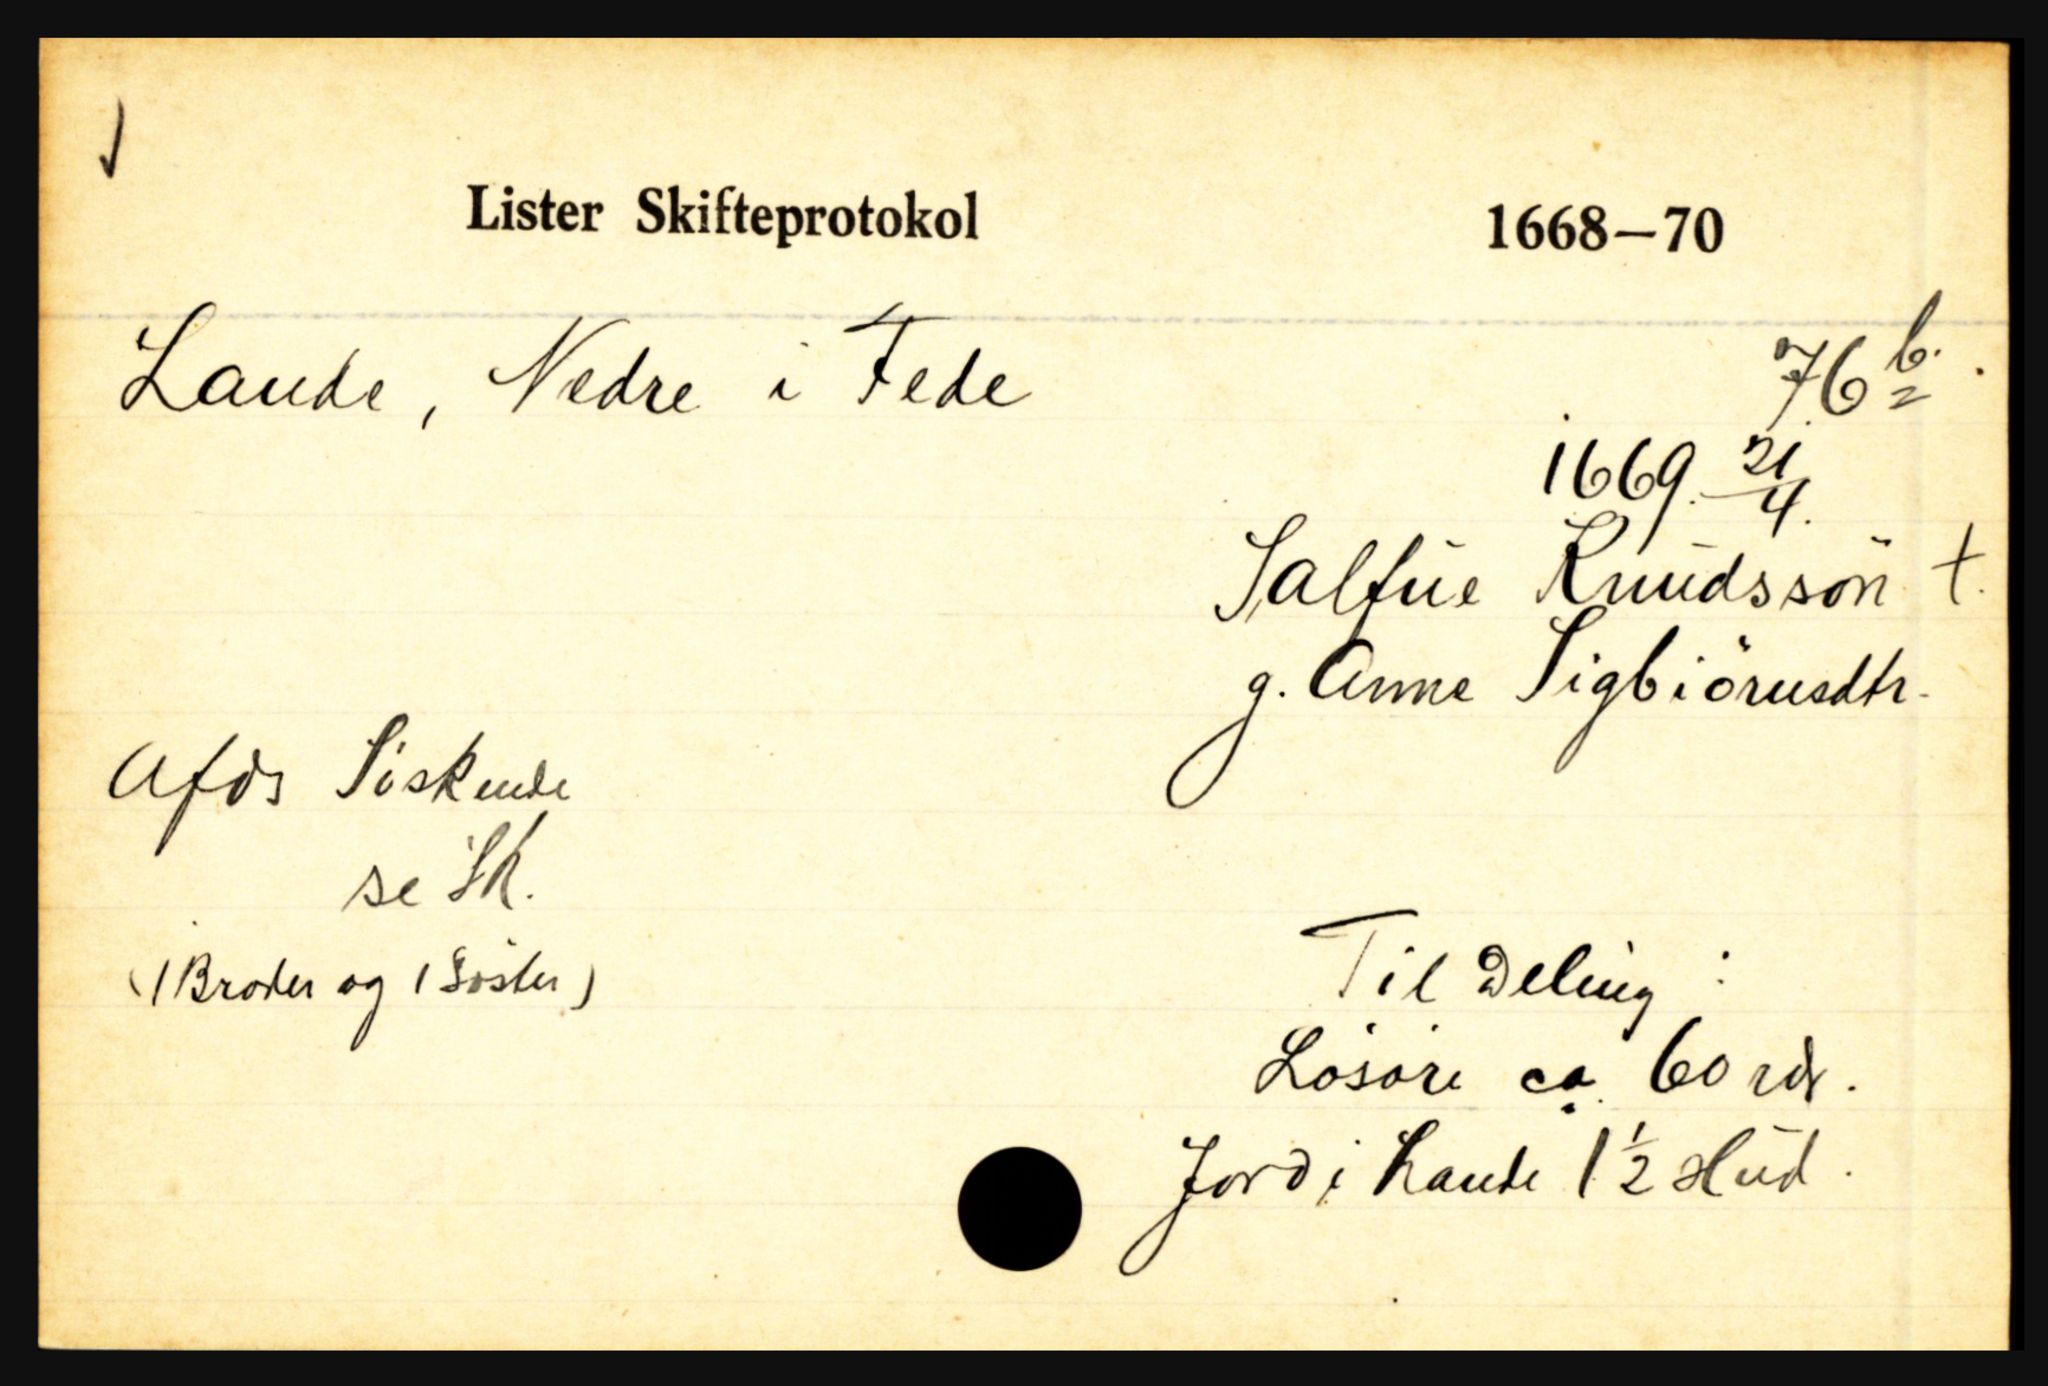 Lister Skifteprotokol 1668—70
Laude, Nedre i Fede 76 b.
1669. 21/4.
Salfue Knudssön †.
g. Anne Sigbiörnsdtr.
Afds Söskende
se Sk.
(1 Broder og 1 Söster)
Til Deling:
Lösöre ca. 60 rdr.
Jord i Laude 1 1/2 Hud.